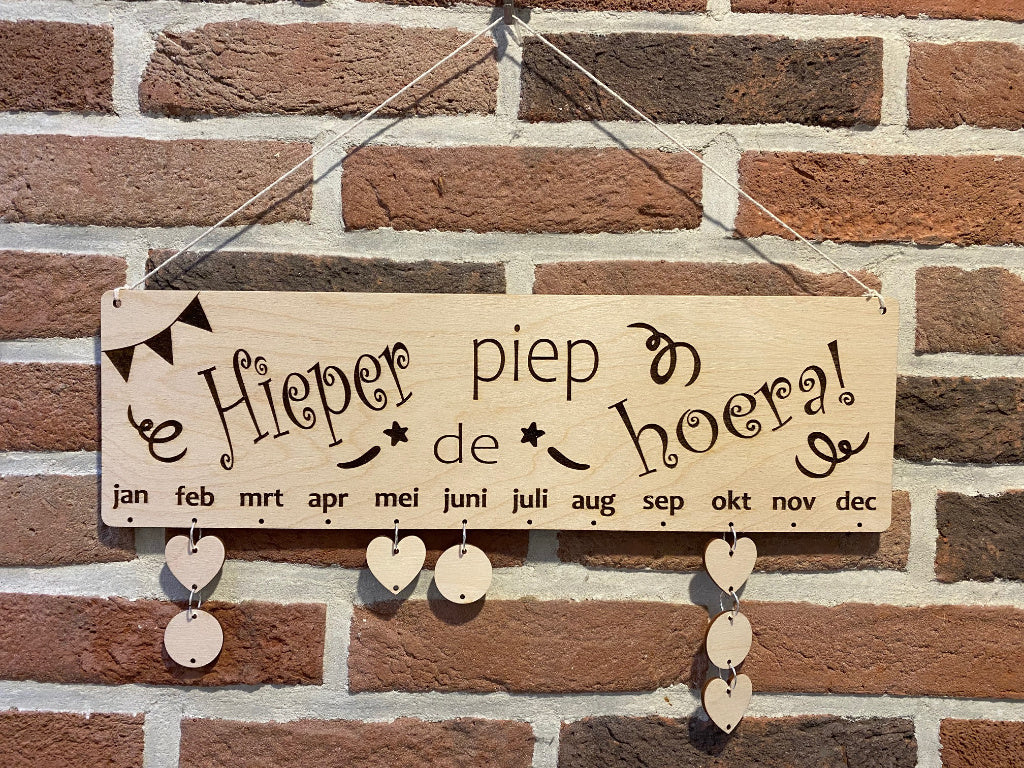 Hieper piep hoera!
de
jan feb mrt apr mei juni juli aug sep okt nov dec